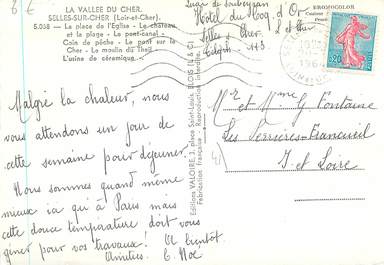 8 €
LA VALLÉE DU CHER.
SELLES-SUR-CHER (Loir-et-Cher).
5.038 — La place de l'Église - Le château
et la plage - Le pont-canal -
Coin de pêche - Le pont sur le
Cher - Le moulin du Theil -
L'usine de céramique.
Malgré la chaleur, nous
vous attendons un jour de
cette semaine pour déjeuner.
Nous sommes quand même
mieux ici qu'à Paris mais
cette douce température doit vous
gêner pour vos travaux! A bientôt
Amitiés
Editions VALOIRE, 3, place Saint-Louis, BLOIS (L & C)
Fabrication Française - Reproduction interdite
Hôtel du Coq d'Or
Selles s/ Cher
113
BROMOCOLOR
0,20
Mr et Mme G Fontaine
Les Perrières-Francueil
I. et Loire